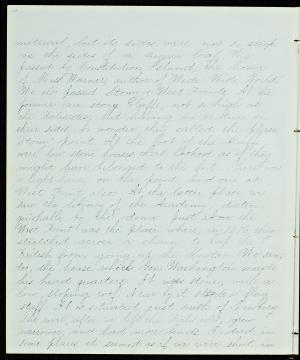 material, but its sides were not so steep
as the sides of a sugar loaf. We
passed by Constitution Island, the home
of Miss Warner, author of "Wide Wide World."
We also passed Stony & West Points. At the
former are stony bluffs, not so high as
the Palisades, but having no verdure on
their sides. No wonder they called the place
"Stony" point. At the foot of the bluffs
were low stone houses that looked as if they
might have belonged to the fort. There was
a light house on the point and one at
West Point, also. At the latter place we
saw the library of the Academy, distin-
guishable by the dome. Just above the
West Point was the place where, in 1776, they
stretched across a chain to keep the
British from going up the Hudson. We saw,
too, the house which Gen. Washington made
his head quarters. It was stone, with a
low, sloping roof. Near by it is a flag
staff. It is situated just north of
the river, after
narrower, and had more bends. Indeed in
some places it seemed as if we were shut in